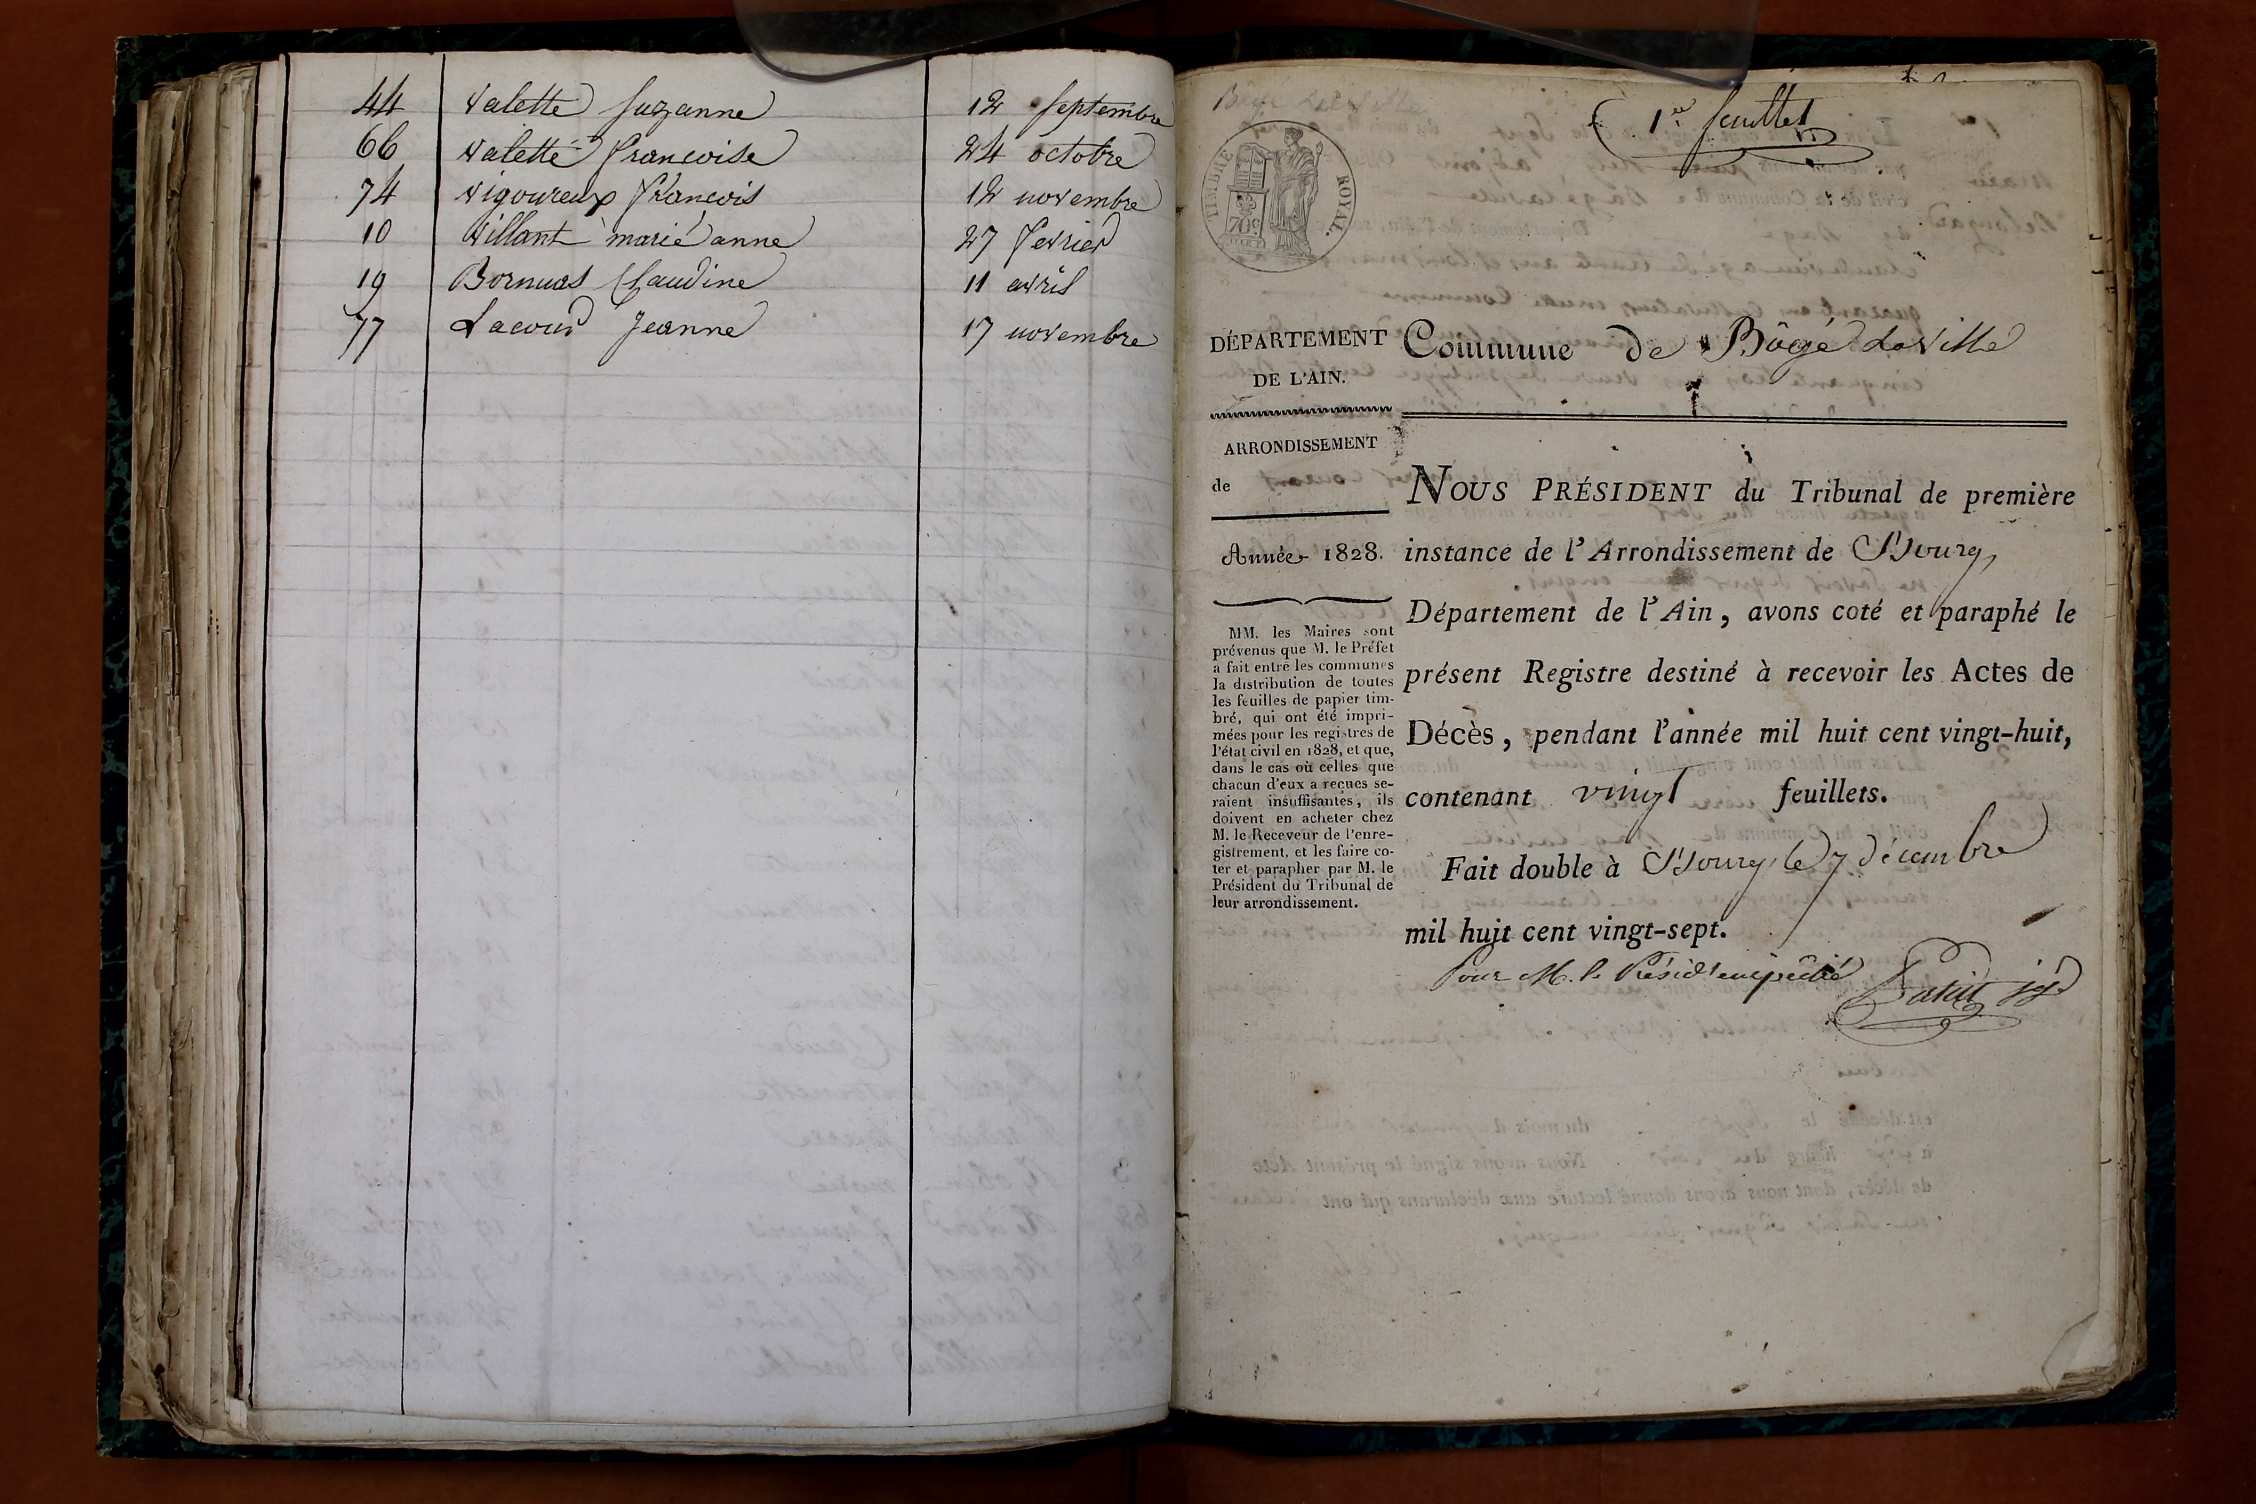 44 Valette Suzanne 12 Septembre
66 Valette françoise 24 octobre
74 Vigoureux François 12 novembre
10 Villant marie anne 27 fevrier
19 Bornuas Claudine 11 avril
77 Lacour Jeanne 17 novembre
1er feuillet
TIMBRE ROYAL.
70c
DÉPARTEMENT
DE L'AIN.
ARRONDISSEMENT
de
Année 1828.
MM. les Maires sont
prévenus que M. le Préfet
a fait entre les communes
la distribution de toutes
les feuilles de papier tim-
bré, qui ont été impri-
mées pour les registres de
l'état civil en 1828, et que,
dans le cas où celles que
chacun d'eux a reçues se-
raient insuffisantes, ils
doivent en acheter chez
M. le Receveur de l'enre-
gistrement, et les faire co-
ter et parapher par M. le
Président du Tribunal de
leur arrondissement.
Commune de Bâgé La Ville
NOUS PRÉSIDENT du Tribunal de première
instance de l'Arrondissement de Bourg
Département de l'Ain, avons coté et paraphé le
présent Registre destiné à recevoir les Actes de
Décès, pendant l'année mil huit cent vingt-huit,
contenant vingt feuillets.
Fait double à Bourg, le 7 décembre
mil huit cent vingt-sept.
Pour M. le Présidt empêché